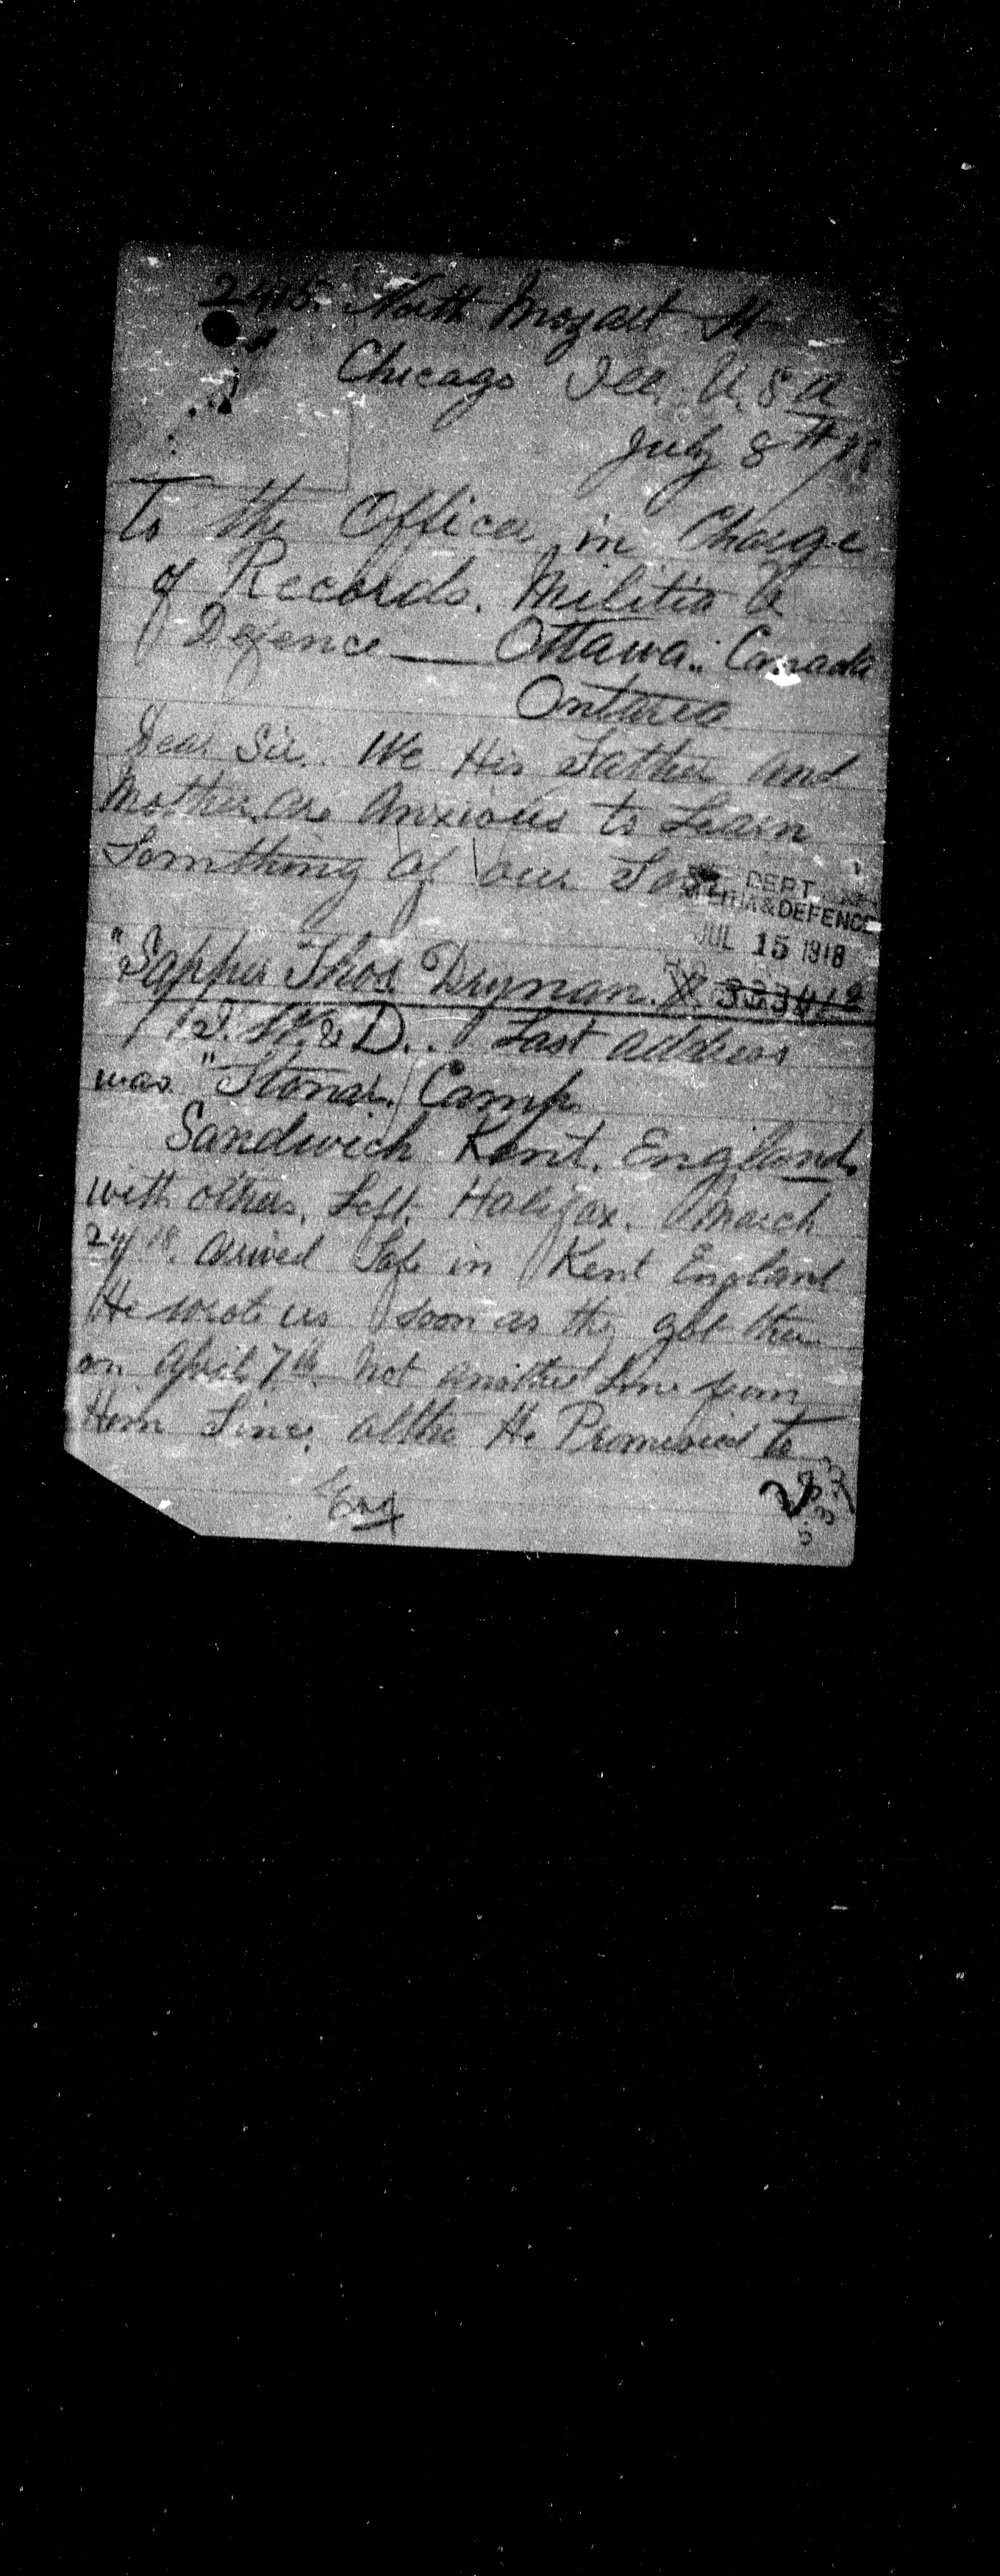 2415 North Mozart St
Chicago Ill. U.S.A
July 8th/18
To the Officer in Charge
of Records. Militia &
Defence — Ottawa. Canada
Ontario
Dear Sir. We His Father and
Mother are Anxious to Learn
Somthing of our Son
DEPT.
MILITIA & DEFENCE
JUL 15 1918
"Sapper Thos Drynan.
I.W.&D.. Last address
was "Stonar. Camp
Sandwich Kent. England.
with others. Left Halifax. March
24th. arrived Safe in Kent England
He wrote us soon as the got ther
on April 7th. Not another Line from
Him Since. altho He Promised to